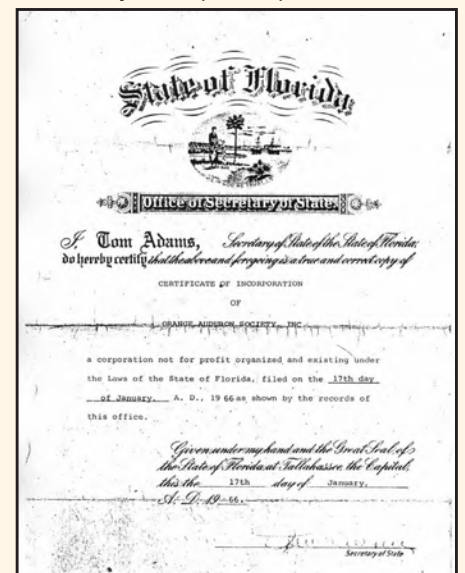 State of Florida
Office of Secretary of State.
I, Tom Adams, Secretary of State of the State of Florida,
do hereby certify that the above and foregoing is a true and correct copy of
CERTIFICATE OF INCORPORATION
OF
ORANGE AUDUBON SOCIETY, INC.
a corporation not for profit organized and existing under
the Laws of the State of Florida, filed on the 17th day
of January, A. D., 19 66 as shown by the records of
this office.
Given under my hand and the Great Seal of
the State of Florida at Tallahassee, the Capital,
this the 17th day of January,
A. D. 19 66.
Secretary of State